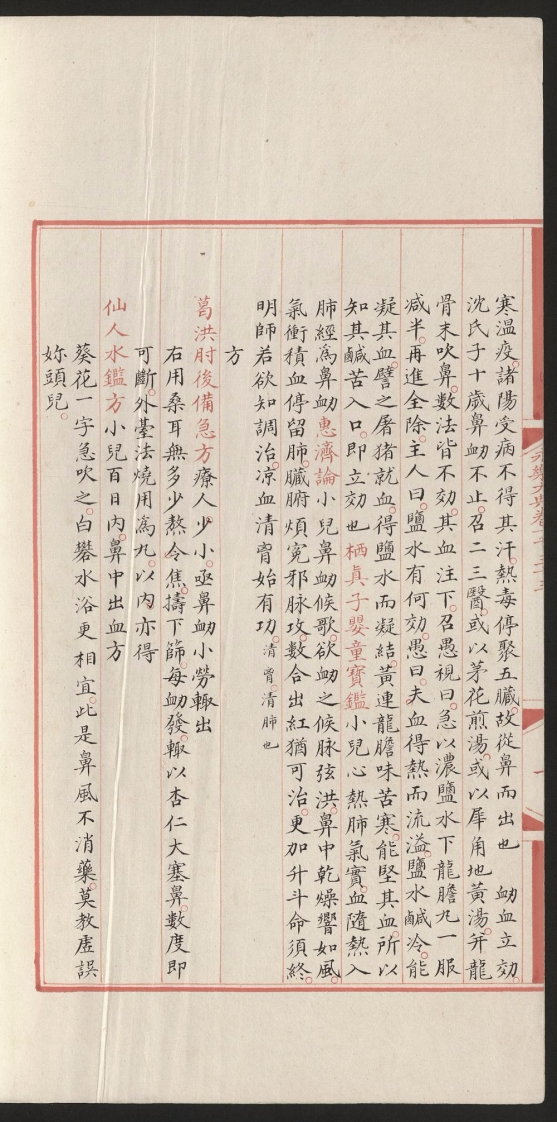 寒溫疫。諸陽受病不得其汗。熱毒停聚五臟。故從鼻而出也　衂血立効。
沈氏子十歲鼻衂不止。召二三醫。或以茅花煎湯。或以犀角地黃湯。并龍
骨末吹鼻。數法皆不効。其血注下。召愚視曰。急以濃鹽水下龍膽丸一服
減半。再進全除。主人曰。鹽水有何効。愚曰。夫血得熱而流溢。鹽水鹹冷。能
凝其血。譬之屠猪就血。得鹽水而凝結。黃連龍膽味苦寒。能堅其血。所以
知其鹹苦入口。即立効也栖眞子嬰童寳鑑小兒心熱肺氣實。血隨熱入
肺經爲鼻衂惠濟論小兒鼻衂候歌。欲衂之候脉弦洪。鼻中乾燥響如風。
氣衝積血停留肺。臟腑煩寃邪脉攻。數合出紅猶可治。更加升斗命須終。
明師若欲知調治。涼血清胷始有功。清胷。清肺也
方
葛洪肘後備急方療人少小。亟鼻衂小勞輙出
右用桑耳無多少熬令焦。擣下篩。每衂發。輙以杏仁大塞鼻。數度即
可斷。外臺法燒用爲丸。以内亦得
仙人水鑑方小兒百日内。鼻中出血方
葵花一字急吹之。白礬水浴更相宜。此是鼻風不消藥。莫教虛誤
妳頭兒。